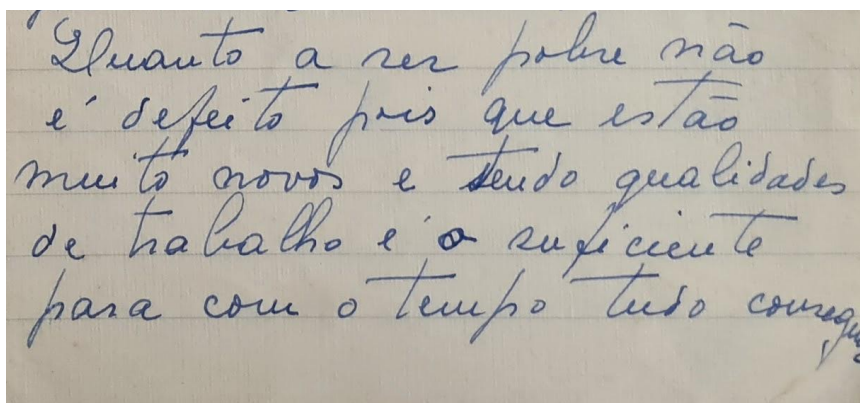 Quanto a ser pobre não
é defeito pois que estão
muito novos e tendo qualidades
de trabalho é o suficiente
para com o tempo tudo